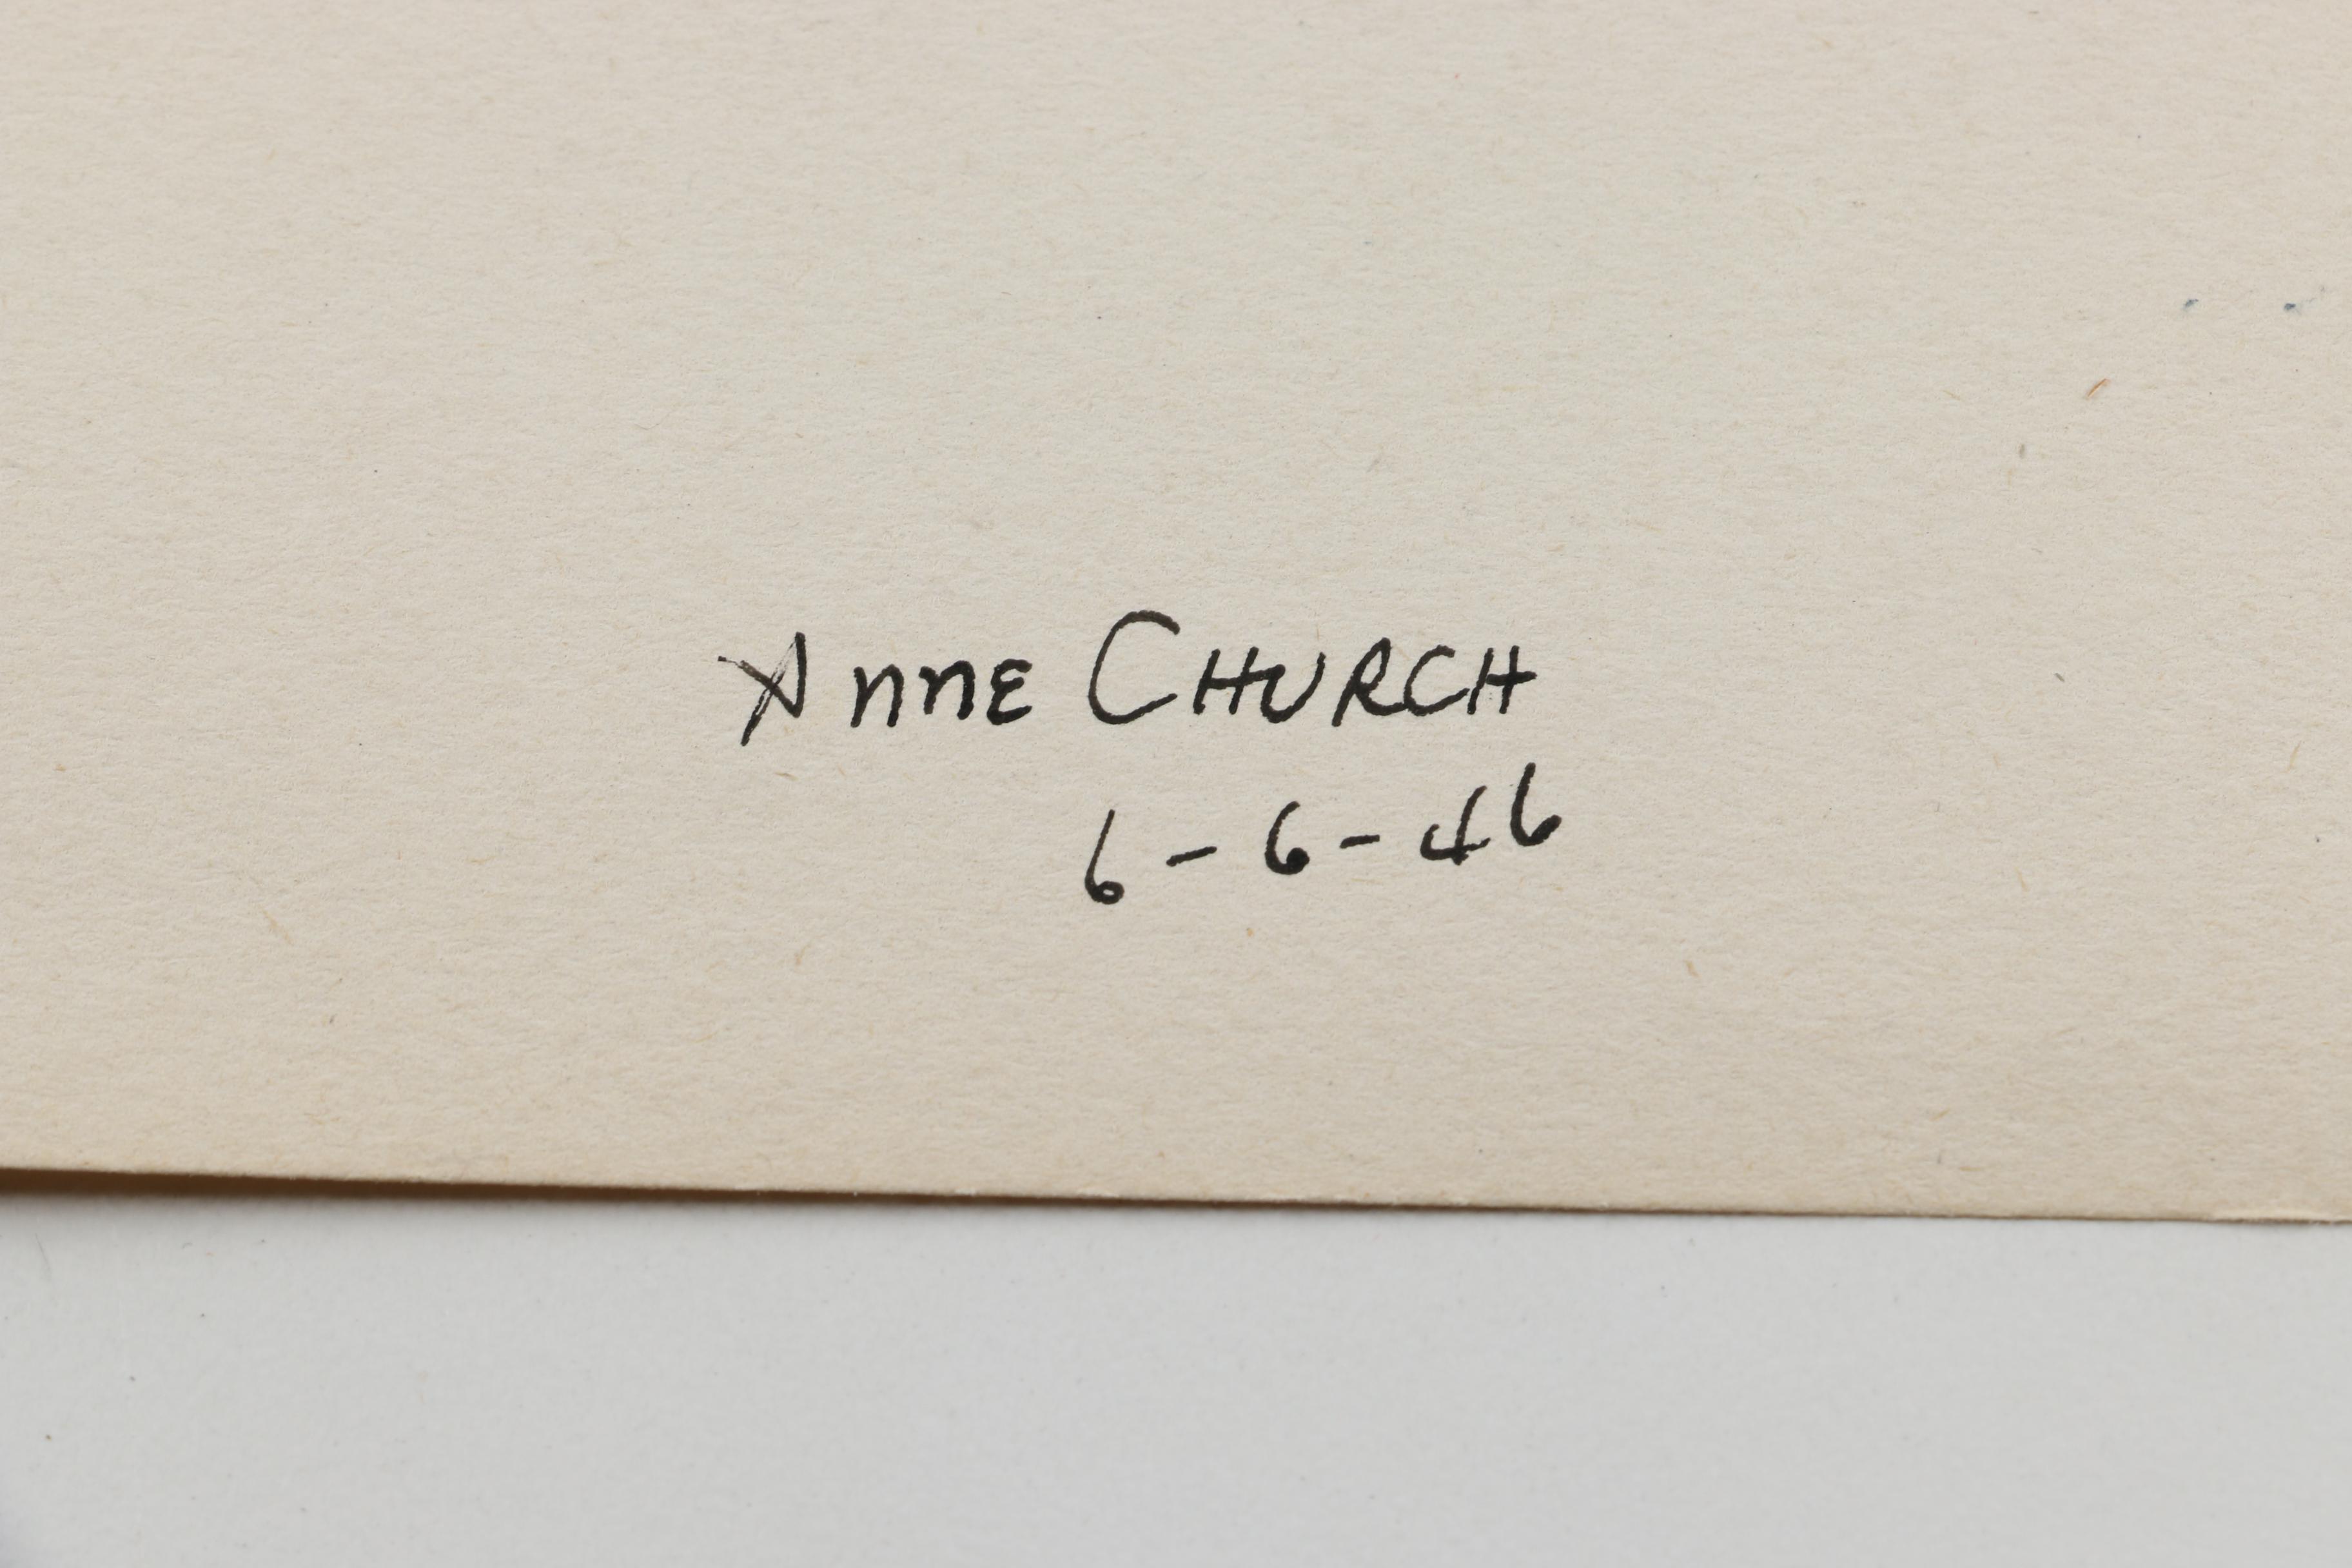 Anne CHURCH
6-6-46